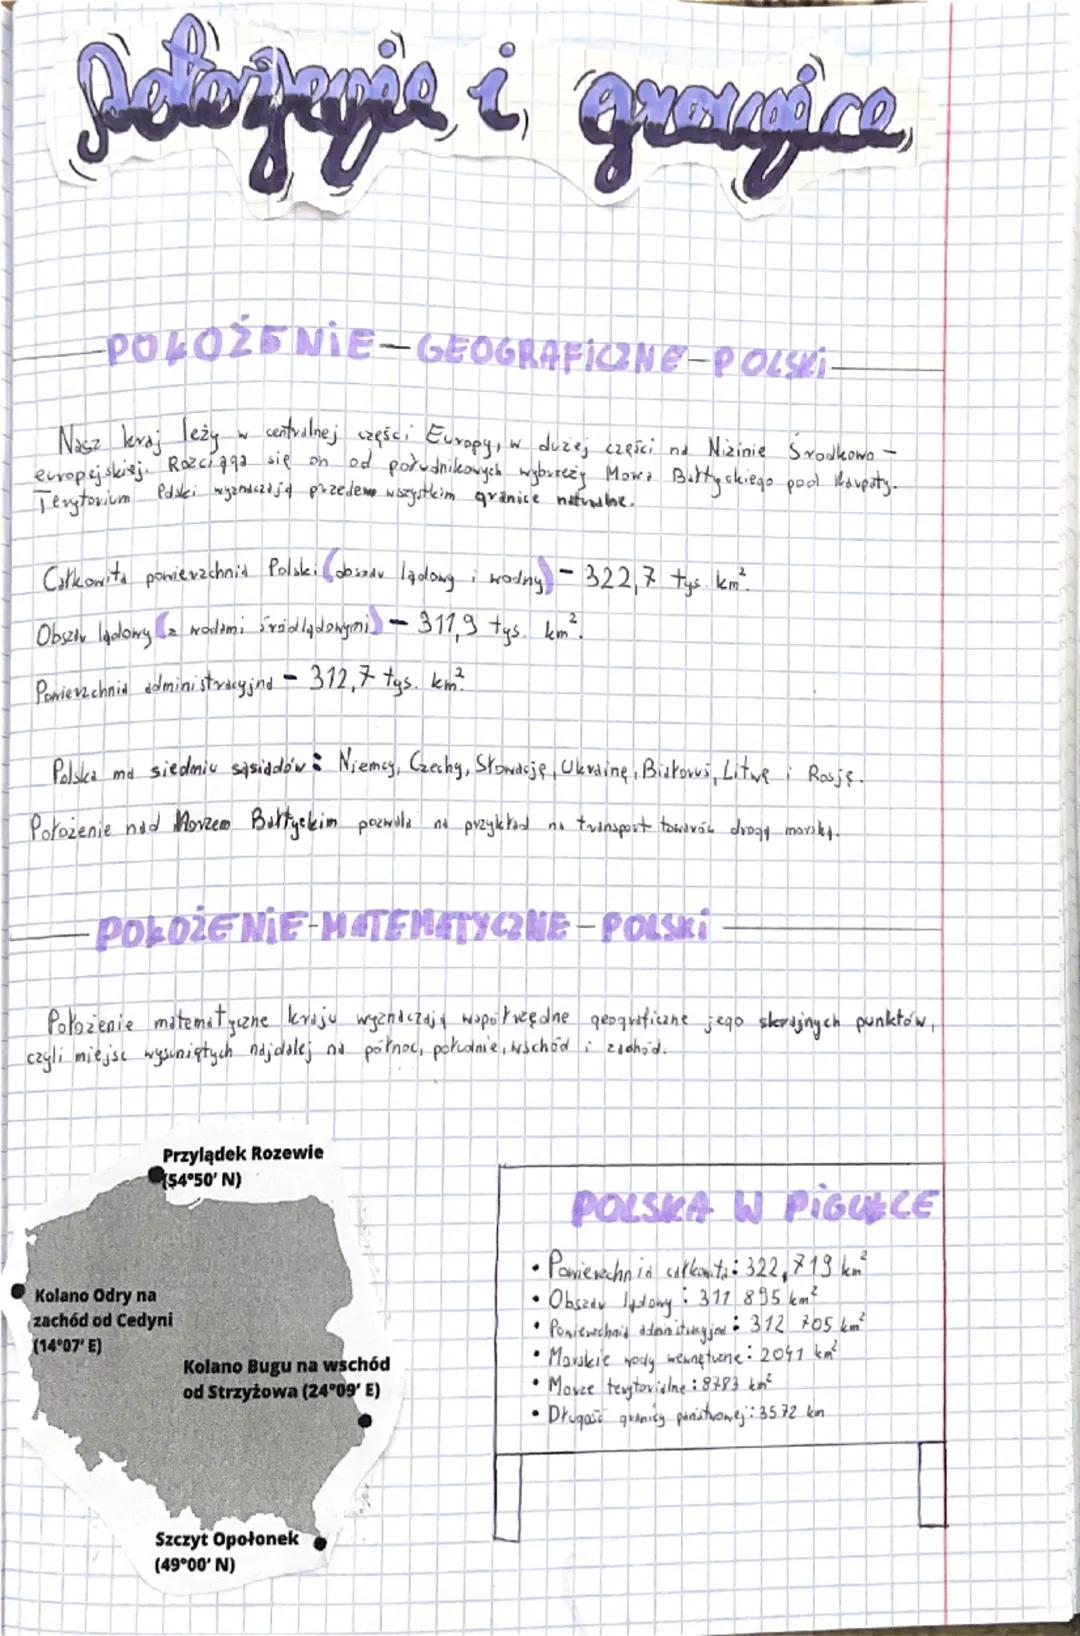 Położenie i granice
POŁOŻENIE-GEOGRAFICZNE-POLSKI
Nasz kraj leży w centralnej części Europy, w dużej części na Nizinie Środkowo-
europejskiej. Rozciąga się on od południkowych wybrzeży Morza Bałtyckiego pod Karpaty.
Terytorium Polski wyznaczają przedewszystkim granice naturalne.
Całkowita powierzchnia Polski (obszar lądowy i wodny) - 322,7 tys. km².
Obszar lądowy (z wodami śródlądowymi) - 311,9 tys. km².
Powierzchnia administracyjna - 312,7 tys. km².
Polska ma siedmiu sąsiadów: Niemcy, Czechy, Słowację, Ukrainę, Białoruś, Litwę i Rosję.
Położenie nad Morzem Bałtyckim pozwala na przykład na transport towarów drogą morską.
POŁOŻENIE-MATEMATYCZNE-POLSKI
Położenie matematyczne kraju wyznaczają współrzędne geograficzne jego skrajnych punktów,
czyli miejsc wysuniętych najdalej na północ, południe, wschód i zachód.
Przylądek Rozewie
(54°50' N)
Kolano Odry na
zachód od Cedyni
(14°07' E)
Kolano Bugu na wschód
od Strzyżowa (24°09' E)
Szczyt Opołonek
(49°00' N)
POLSKA W PIGUŁCE
• Powierzchnia całkowita: 322,719 km²
• Obszar lądowy: 311 895 km²
• Powierzchnia administracyjna: 312 705 km²
• Morskie wody wewnętrzne: 2041 km²
• Morze terytorialne: 8783 km²
• Długość granicy państwowej: 3572 km